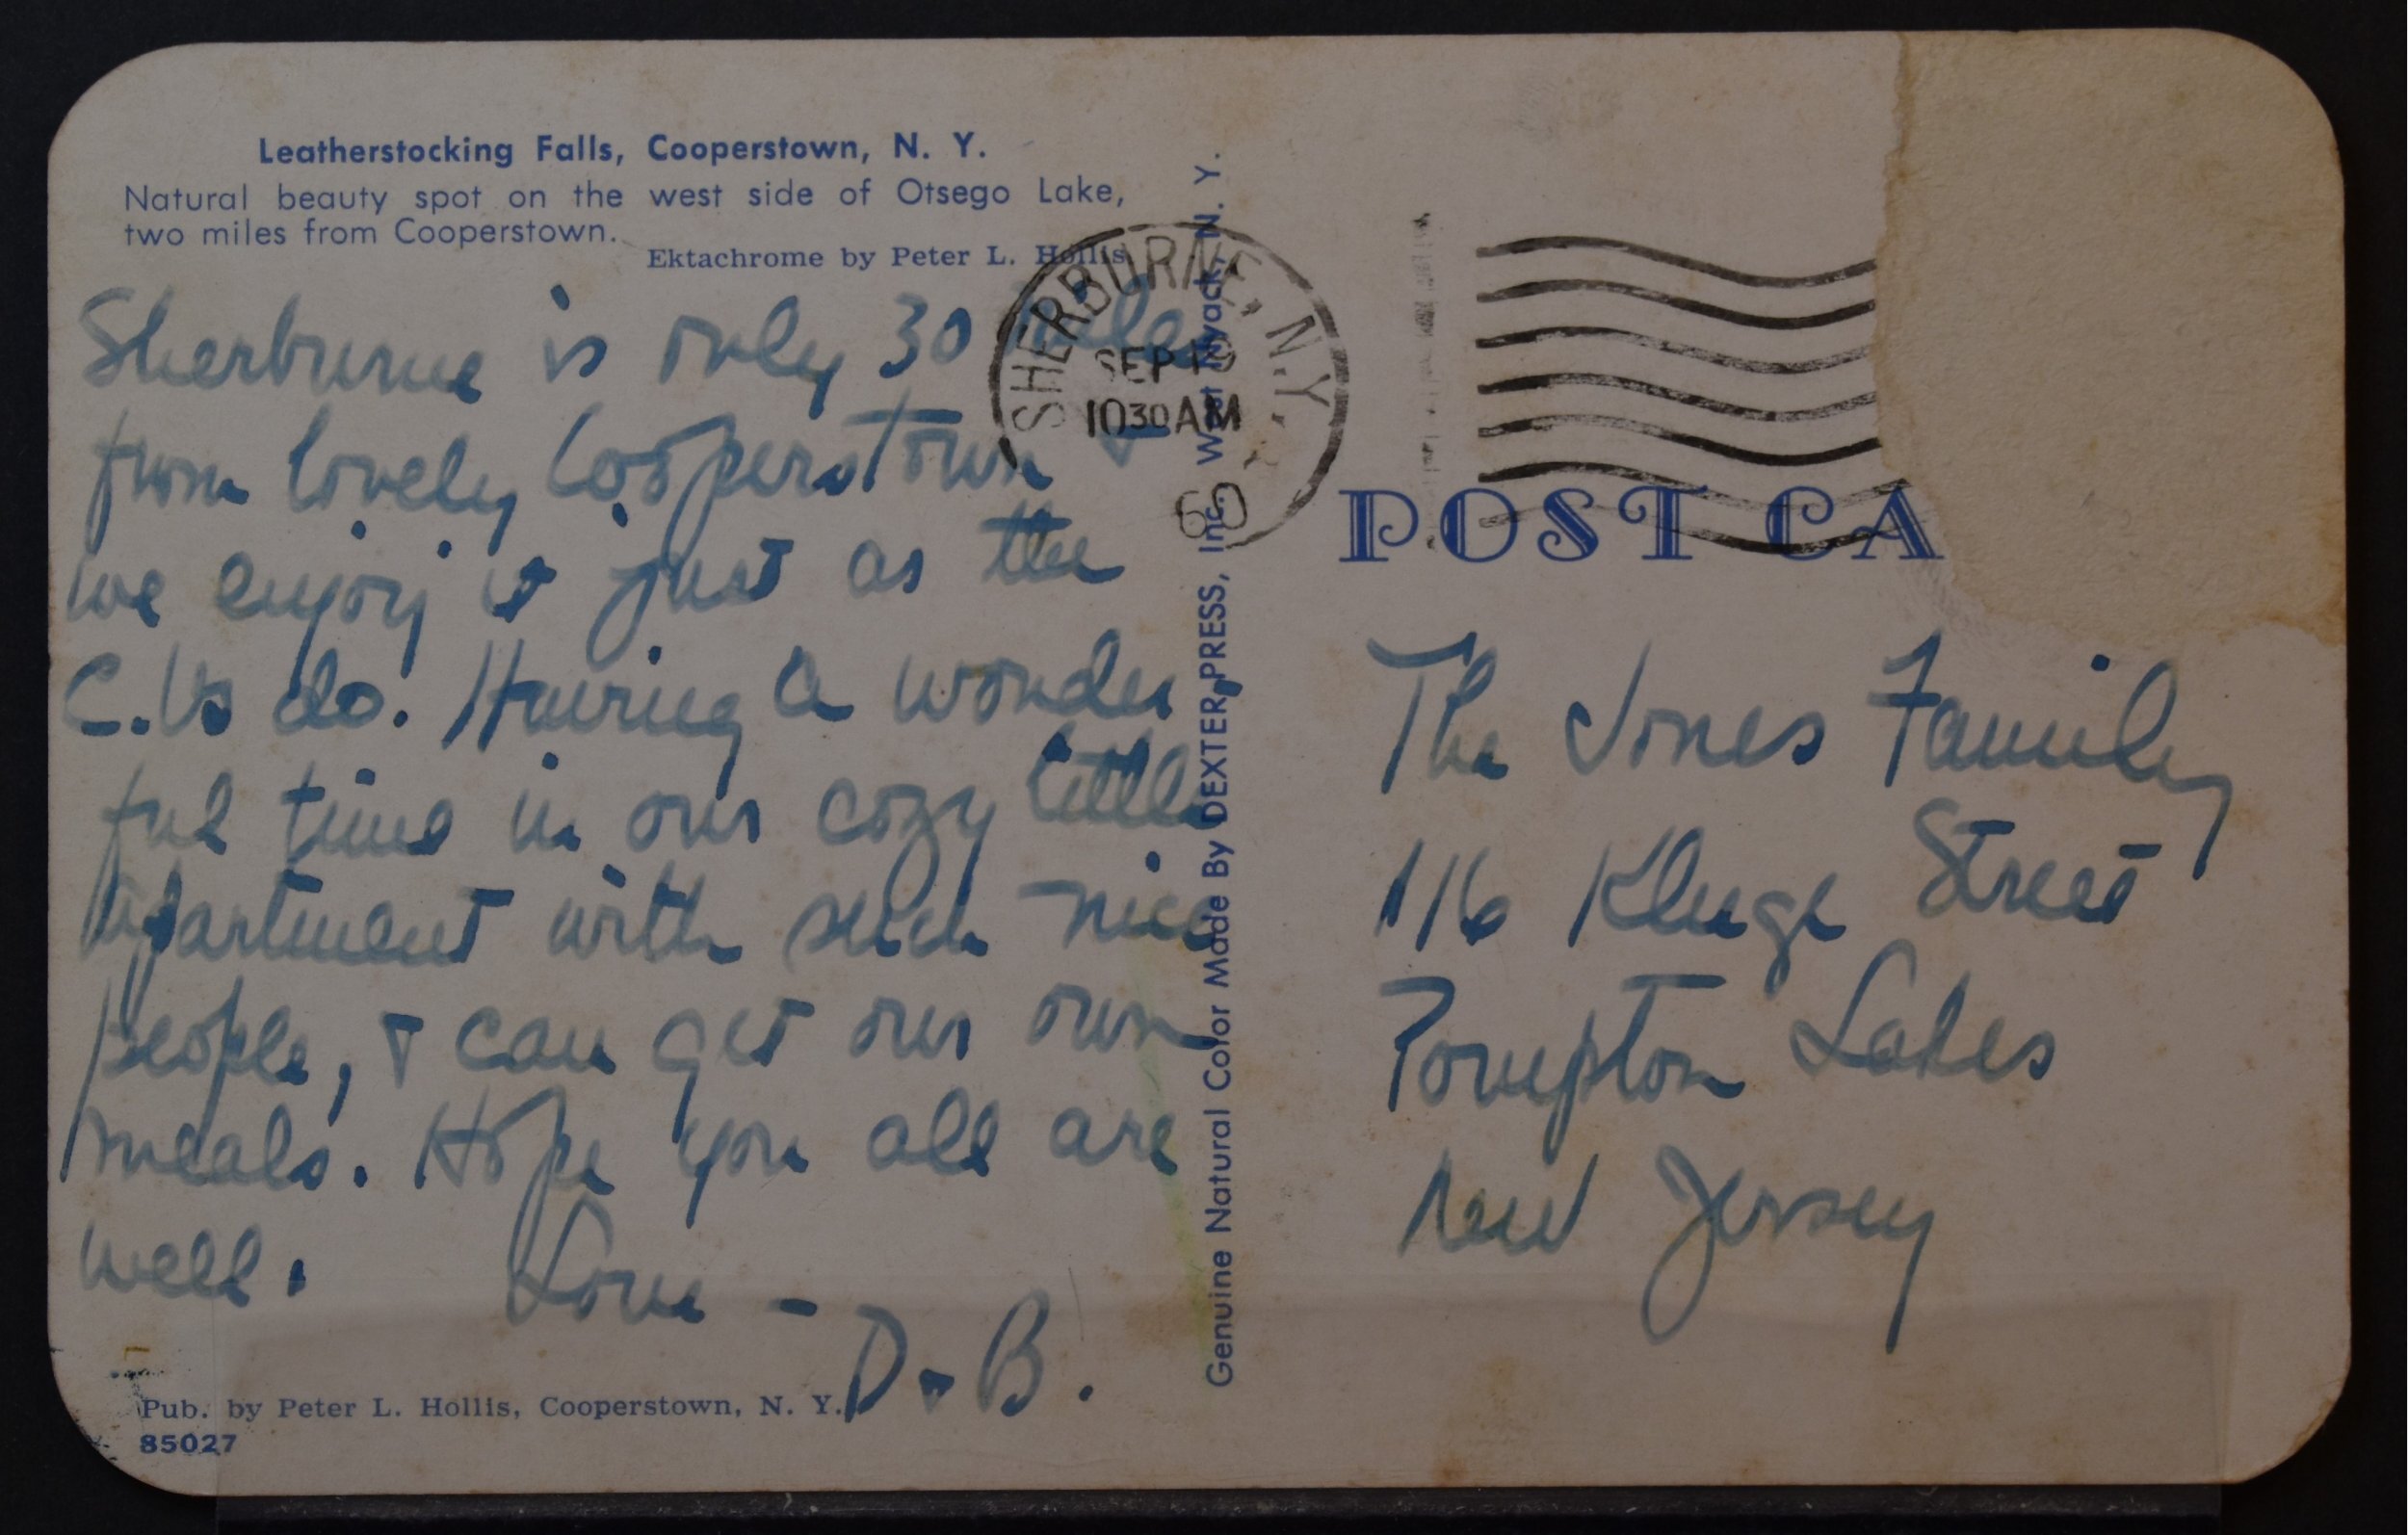 Leatherstocking Falls, Cooperstown, N. Y.
Natural beauty spot on the west side of Otsego Lake,
two miles from Cooperstown.
Ektachrome by Peter L. Hollis
Sherburne is only 30 miles
from lovely Cooperstown &
we enjoy it just as the
C.Vs do. Having a wonder-
ful time in our cozy little
apartment with such nice
people, & can get our own
meals. Hope you all are
well. Love -
D. B.
Pub. by Peter L. Hollis, Cooperstown, N. Y.
85027
Genuine Natural Color Made By DEXTER PRESS, Inc. West Nyack, N. Y.
SHERBURNE, N.Y.
SEP 19
1030 AM
60
POST CA
The Jones Family
116 Kluge Street
Pompton Lakes
New Jersey